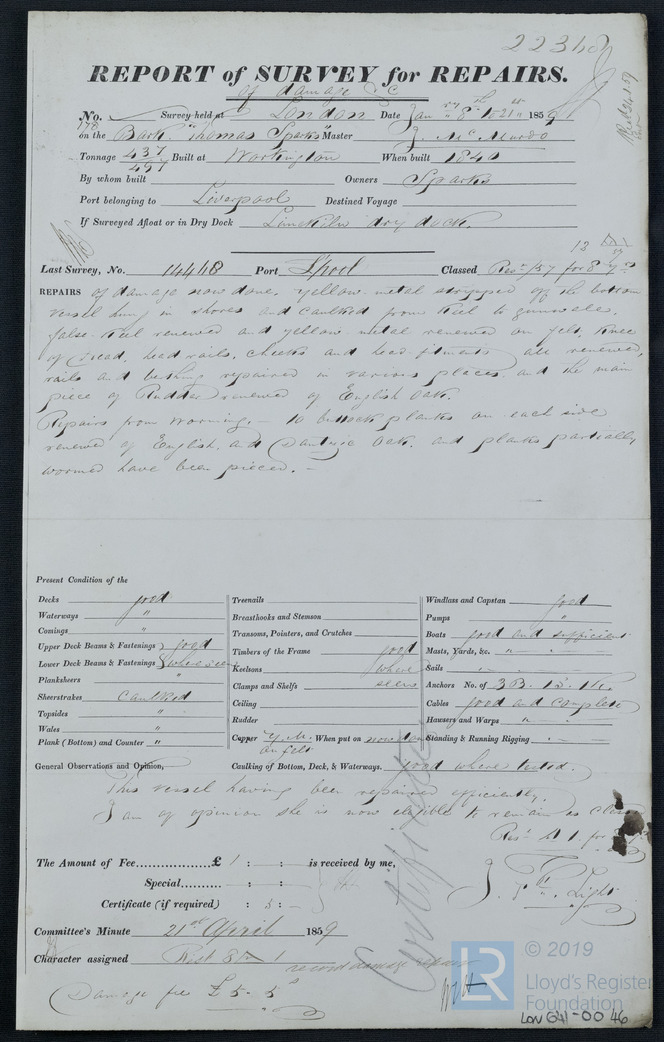 22348
REPORT of SURVEY for REPAIRS.
of damage &c
No. Survey held at London Date Jany 8th to 21st 1859
on the Bark "Thomas Sparks" Master J. McMurdo
Tonnage 437 Built at Workington When built 1840
497
By whom built Owners Sparks
Port belonging to Liverpool Destined Voyage
If Surveyed Afloat or in Dry Dock Limekiln dry dock.
Last Survey, No. 14448 Port Lpool Classed Rest /57 for 8 ys
REPAIRS of damage now done, yellow metal stripped off the bottom
vessel hung in shores and caulked from keel to gunwale,
false keel renewed and yellow metal renewed on felt, knee
of head, head rails, cheeks and head fitments all renewed,
rails and repaired in various places and the main
piece of Rudder renewed of English Oak.
Repairs from worming. - 10 buttock planks on each side
renewed of English and Dantzic Oak and planks partially
wormed have been pieced. -
Present Condition of the
Decks good
Waterways "
Comings "
Upper Deck Beams & Fastenings good
Lower Deck Beams & Fastenings where seen
Planksheers "
Sheerstrakes Caulked
Topsides "
Wales "
Plank (Bottom) and Counter "
Treenails
Breasthooks and Stemson
Transoms, Pointers, and Crutches
Timbers of the Frame good
Keelsons where
Clamps and Shelfs seen
Ceiling
Rudder
Copper Y.M. When put on now done
on felt
Windlass and Capstan good
Pumps "
Boats good and sufficient
Masts, Yards, &c. "
Sails
Anchors No. of 3B. 1S. 1K.
Cables good and complete
Hawsers and Warps "
Standing & Running Rigging
General Observations and Opinion, Caulking of Bottom, Deck, & Waterways. good where tested.
This vessel having been repaired efficiently,
I am of opinion she is now eligible to remain as class
Rest A 1 for
The Amount of Fee £ 1 : - : - is received by me,
Special : - : -
Certificate (if required) : 5 : -
J. Light
Committee's Minute 21st April 1859
Character assigned Rest 8 A 1
record damage repairs
Damage fee £5.5s
Certificate
LR © 2019
Lloyd's Register
Foundation
LON 641-0046